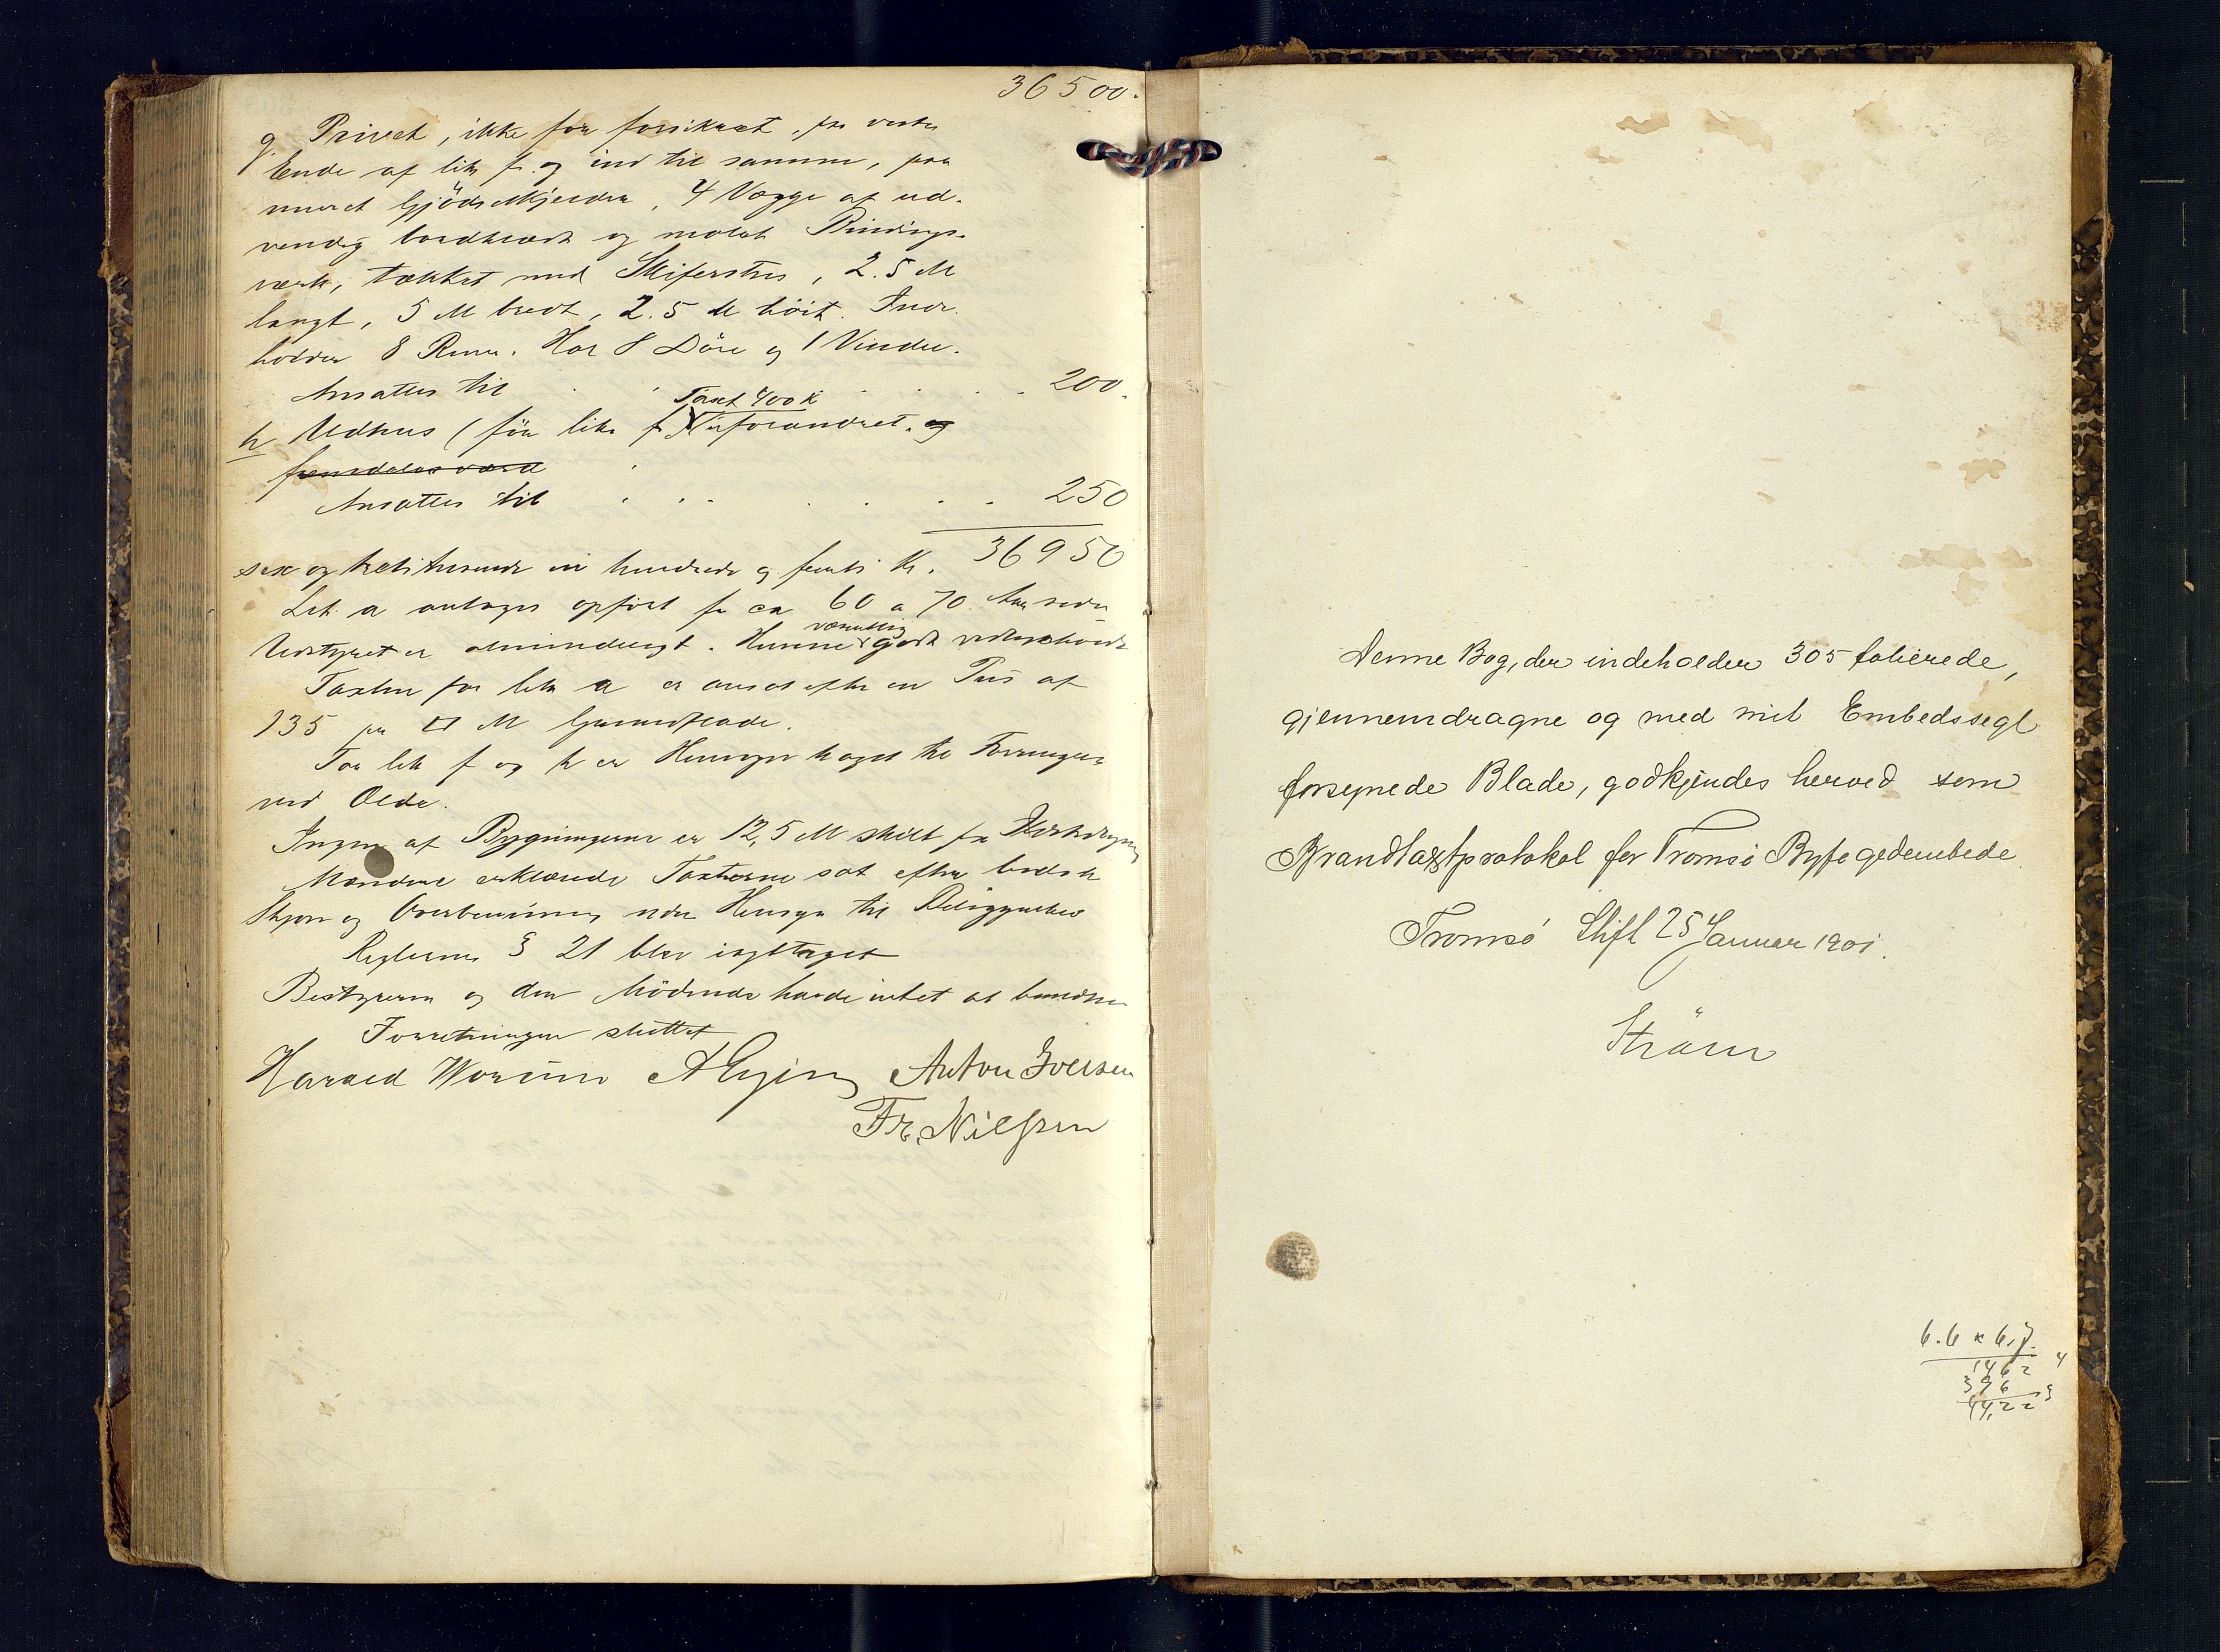 36500.
g. Privet, ikke før forsikret, fra vestre
Ende af litr f. og ind til samme, paa
muret Gjödselkjelder, 4 Vægge af ud-
vendig bordklædt og malet Bindings-
værk, tækket med Skifersten, 2.5 M
langt, 5 M bredt, 2.5 M höit. Inde-
holder 8 Rum. Har 8 Döre og 1 Vindu.
Ansættes til . . . . . 200.
Taxt 400 K
h Udhus (för litr f) Uforandret. og
Ansættes til . . . . . 250
36950
sex og tretitusende ni hundrede og femti Kr.
Lit. a antages opfört for ca 60 a 70 Aar siden
væsentlig
Udstyret er almindeligt. Huset godt vedligeholdt
Taxten for litr a er ansat efter en Pris af
135 pr □ M Grundflade.
For litr f og h er Hensyn taget til Forringelse
ved Ælde.
Ingen af Bygningerne er 12,5 M skilt fra
Mændene erklærede Taxterne sat efter bedste
Skjøn og Overbevisning uden Hensyn til Beliggenheden
Reglernes § 21 blev iagttaget
Bestyreren og den Mödende havde intet at bemærke
Forretningen sluttet
Harald Anton Iversen
Fr. Nilssen
Denne Bog, der indeholder 305 folierede,
gjennemdragne og med mit Embedssegl
forsynede Blade, godkjendes herved som
Brandtaxtprotokol for Tromsø Byfogedembede.
Tromsø Stift 25 Januar 1901.
Ström
6.6 x 6,7.
1462 4
396
44,22 3